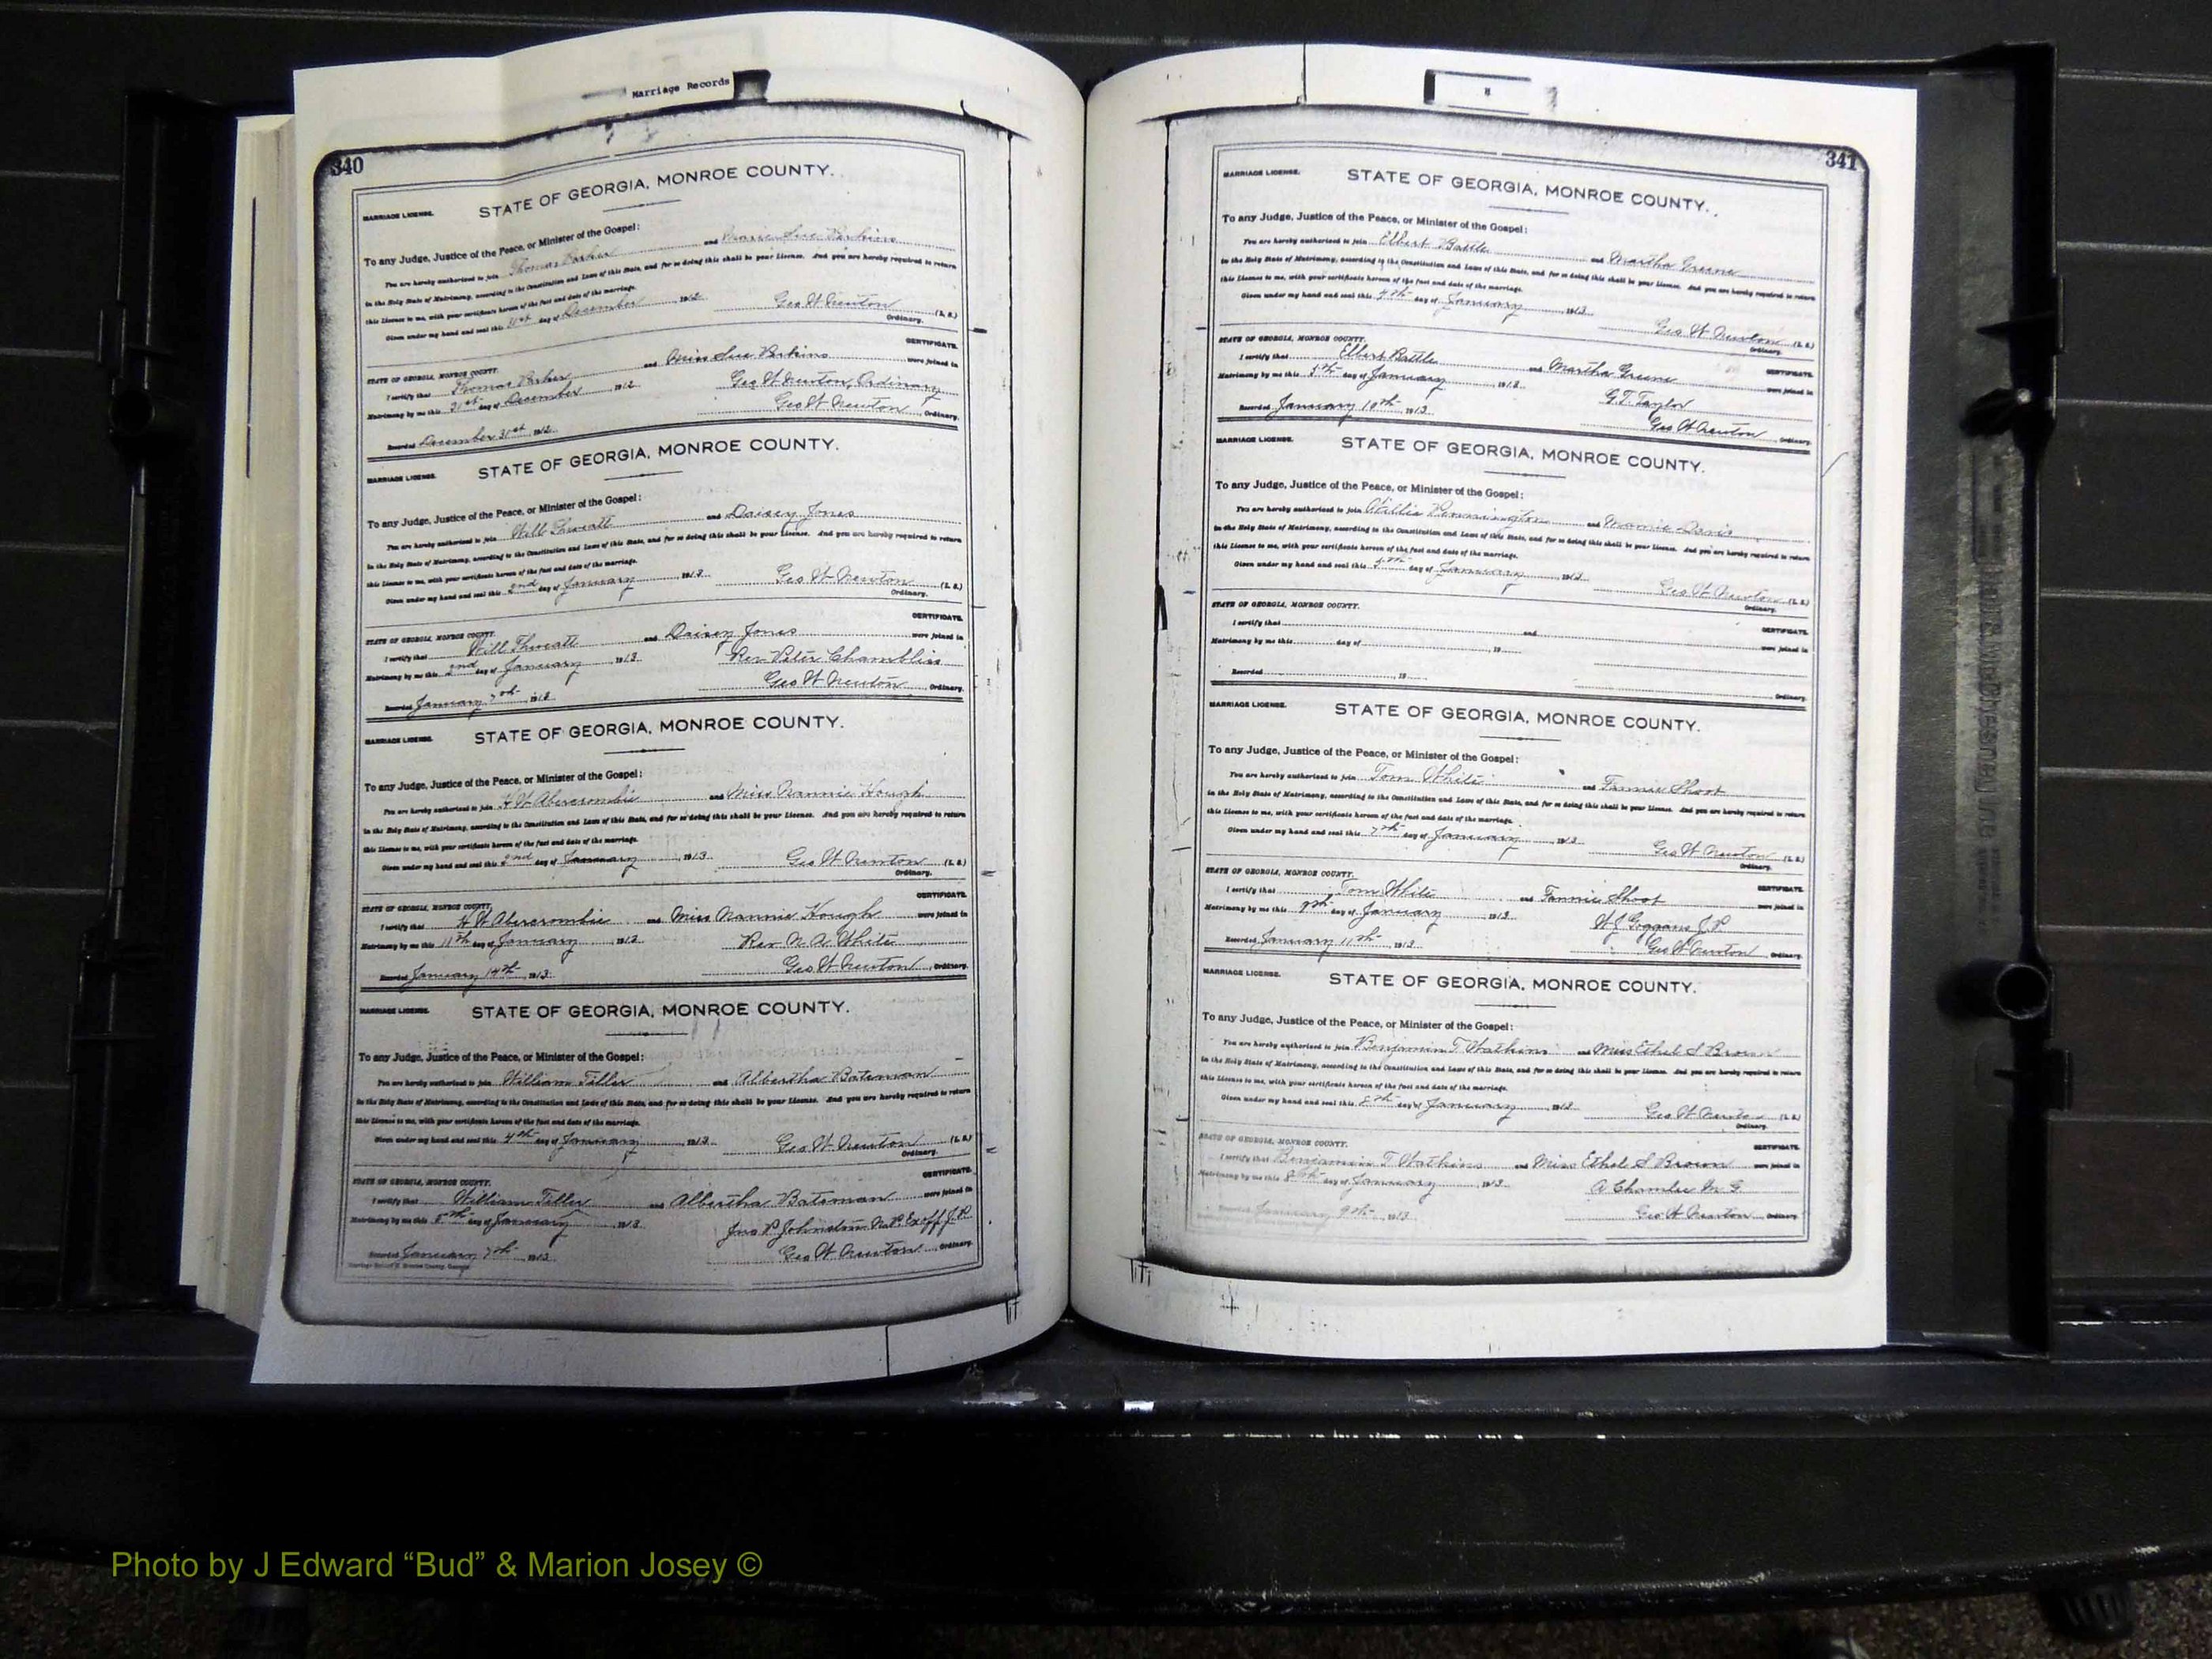 Marriage Records
340
MARRIAGE LICENSE.
STATE OF GEORGIA, MONROE COUNTY.
To any Judge, Justice of the Peace, or Minister of the Gospel:
You are hereby authorized to join Thomas Parker and Sue Perkins
in the Holy State of Matrimony, according to the Constitution and Laws of this State, and for so doing this shall be your License. And you are hereby required to return
this License to me, with your certificate hereon of the fact and date of the marriage.
Given under my hand and seal this 31st day of December 1912 Geo W Newton (L. S.)
Ordinary.
STATE OF GEORGIA, MONROE COUNTY. CERTIFICATE.
I certify that Thomas Parker and Miss Sue Perkins were joined in
Matrimony by me this 31st day of December 1912 Geo W Newton, Ordinary
Recorded December 31st 1912 Geo W Newton, Ordinary.
MARRIAGE LICENSE.
STATE OF GEORGIA, MONROE COUNTY.
To any Judge, Justice of the Peace, or Minister of the Gospel:
You are hereby authorized to join Will Threatt and Daisey Jones
in the Holy State of Matrimony, according to the Constitution and Laws of this State, and for so doing this shall be your License. And you are hereby required to return
this License to me, with your certificate hereon of the fact and date of the marriage.
Given under my hand and seal this 2nd day of January 1913 Geo W Newton (L. S.)
Ordinary.
STATE OF GEORGIA, MONROE COUNTY. CERTIFICATE.
I certify that Will Threatt and Daisey Jones were joined in
Matrimony by me this 2nd day of January 1913 Rev Peter Chambliss
Recorded January 7th 1913 Geo W Newton, Ordinary.
MARRIAGE LICENSE.
STATE OF GEORGIA, MONROE COUNTY.
To any Judge, Justice of the Peace, or Minister of the Gospel:
You are hereby authorized to join H W Abercrombie and Miss Nannie Hough
in the Holy State of Matrimony, according to the Constitution and Laws of this State, and for so doing this shall be your License. And you are hereby required to return
this License to me, with your certificate hereon of the fact and date of the marriage.
Given under my hand and seal this 2nd day of January 1913 Geo W Newton (L. S.)
Ordinary.
STATE OF GEORGIA, MONROE COUNTY. CERTIFICATE.
I certify that H W Abercrombie and Miss Nannie Hough were joined in
Matrimony by me this 11th day of January 1913 Rev N A White
Recorded January 14th 1913 Geo W Newton, Ordinary.
MARRIAGE LICENSE.
STATE OF GEORGIA, MONROE COUNTY.
To any Judge, Justice of the Peace, or Minister of the Gospel:
You are hereby authorized to join William Tiller and Albertha Bateman
in the Holy State of Matrimony, according to the Constitution and Laws of this State, and for so doing this shall be your License. And you are hereby required to return
this License to me, with your certificate hereon of the fact and date of the marriage.
Given under my hand and seal this 4th day of January 1913 Geo W Newton (L. S.)
Ordinary.
STATE OF GEORGIA, MONROE COUNTY. CERTIFICATE.
I certify that William Tiller and Albertha Bateman were joined in
Matrimony by me this 5th day of January 1913 Jno P Johnston N.P. Exoff J.P.
Recorded January 7th 1913 Geo W Newton, Ordinary.
341
MARRIAGE LICENSE.
STATE OF GEORGIA, MONROE COUNTY.
To any Judge, Justice of the Peace, or Minister of the Gospel:
You are hereby authorized to join Elbert Battle and Martha Greene
in the Holy State of Matrimony, according to the Constitution and Laws of this State, and for so doing this shall be your License. And you are hereby required to return
this License to me, with your certificate hereon of the fact and date of the marriage.
Given under my hand and seal this 4th day of January 1913 Geo W Newton (L. S.)
Ordinary.
STATE OF GEORGIA, MONROE COUNTY. CERTIFICATE.
I certify that Elbert Battle and Martha Greene were joined in
Matrimony by me this 5th day of January 1913 G.T. Taylor
Recorded January 10th 1913 Geo W Newton, Ordinary.
MARRIAGE LICENSE.
STATE OF GEORGIA, MONROE COUNTY.
To any Judge, Justice of the Peace, or Minister of the Gospel:
You are hereby authorized to join Willie Pennington and Mamie Davis
in the Holy State of Matrimony, according to the Constitution and Laws of this State, and for so doing this shall be your License. And you are hereby required to return
this License to me, with your certificate hereon of the fact and date of the marriage.
Given under my hand and seal this day of January 1913 Geo W Newton (L. S.)
Ordinary.
STATE OF GEORGIA, MONROE COUNTY. CERTIFICATE.
I certify that and were joined in
Matrimony by me this day of , 19
Recorded , 19 Ordinary.
MARRIAGE LICENSE.
STATE OF GEORGIA, MONROE COUNTY.
To any Judge, Justice of the Peace, or Minister of the Gospel:
You are hereby authorized to join Tom White and Fannie Shoot
in the Holy State of Matrimony, according to the Constitution and Laws of this State, and for so doing this shall be your License. And you are hereby required to return
this License to me, with your certificate hereon of the fact and date of the marriage.
Given under my hand and seal this 7th day of January 1913 Geo W Newton (L. S.)
Ordinary.
STATE OF GEORGIA, MONROE COUNTY. CERTIFICATE.
I certify that Tom White and Fannie Shoot were joined in
Matrimony by me this 9th day of January 1913 W J Goggans J.P.
Recorded January 11th 1913 Geo W Newton, Ordinary.
MARRIAGE LICENSE.
STATE OF GEORGIA, MONROE COUNTY.
To any Judge, Justice of the Peace, or Minister of the Gospel:
You are hereby authorized to join Benjamin T Watkins and Miss Ethel S Brown
in the Holy State of Matrimony, according to the Constitution and Laws of this State, and for so doing this shall be your License. And you are hereby required to return
this License to me, with your certificate hereon of the fact and date of the marriage.
Given under my hand and seal this 8th day of January 1913 Geo W Newton (L. S.)
Ordinary.
STATE OF GEORGIA, MONROE COUNTY. CERTIFICATE.
I certify that Benjamin T Watkins and Miss Ethel S Brown were joined in
Matrimony by me this 8th day of January 1913 A Chamlee M G
Recorded January 9th 1913 Geo W Newton, Ordinary.
Photo by J Edward “Bud” & Marion Josey ©